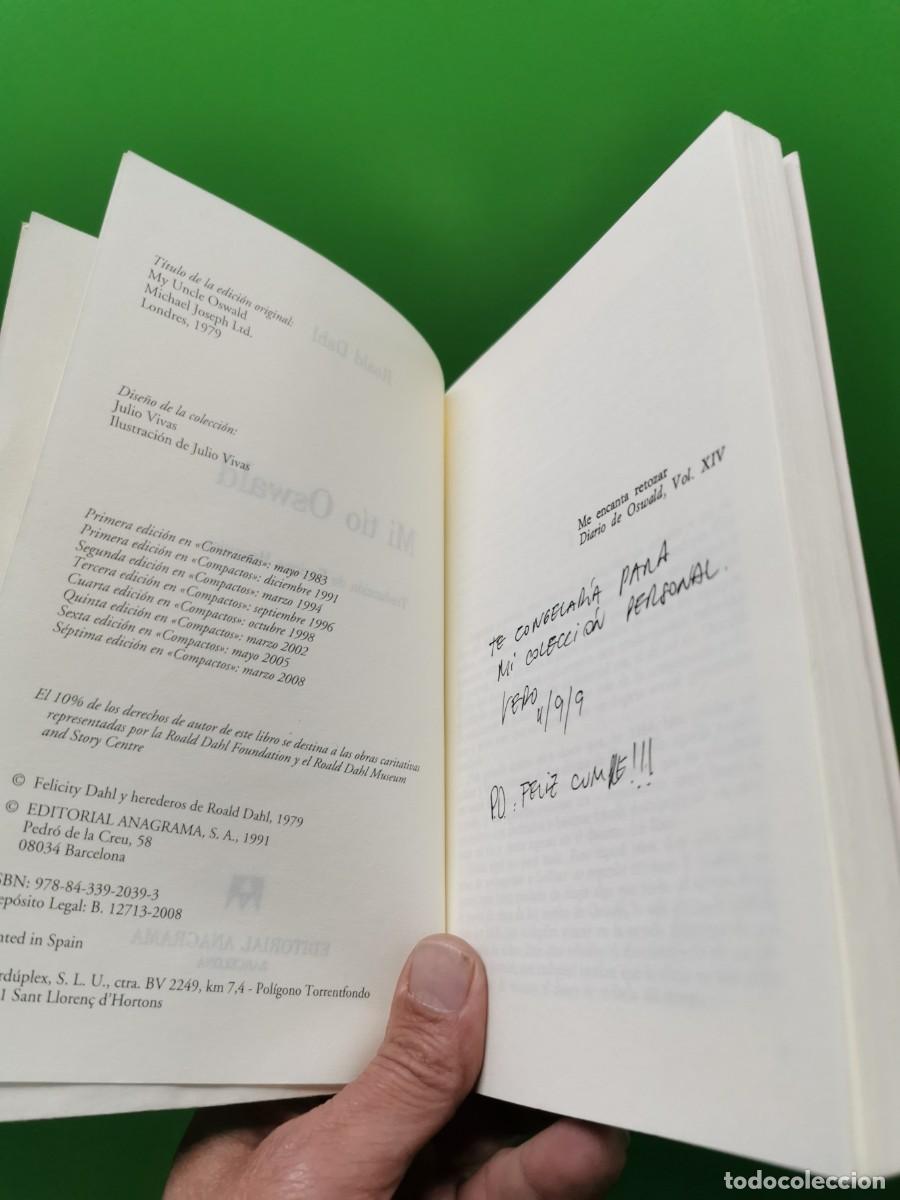 Título de la edición original:
My Uncle Oswald
Michael Joseph Ltd.
Londres, 1979
Diseño de la colección:
Julio Vivas
Ilustración de Julio Vivas
Primera edición en «Contraseñas»: mayo 1983
Primera edición en «Compactos»: diciembre 1991
Segunda edición en «Compactos»: marzo 1994
Tercera edición en «Compactos»: septiembre 1996
Cuarta edición en «Compactos»: octubre 1998
Quinta edición en «Compactos»: marzo 2002
Sexta edición en «Compactos»: mayo 2005
Séptima edición en «Compactos»: marzo 2008
El 10% de los derechos de autor de este libro se destina a las obras caritativas
representadas por la Roald Dahl Foundation y el Roald Dahl Museum
and Story Centre
© Felicity Dahl y herederos de Roald Dahl, 1979
© EDITORIAL ANAGRAMA, S. A., 1991
Pedró de la Creu, 58
08034 Barcelona
SBN: 978-84-339-2039-3
epósito Legal: B. 12713-2008
nted in Spain
rdúplex, S. L. U., ctra. BV 2249, km 7,4 - Polígono Torrentfondo
1 Sant Llorenç d'Hortons
Me encanta retozar
Diario de Oswald, Vol. XIV
TE CONGELARÍA PARA
MI COLECCIÓN PERSONAL.
VERO 4/9/9
P.D.: FELIZ CUMPLE!!!
Roald Dahl
Mi tío Oswald
EDITORIAL ANAGRAMA
BARCELONA
todocoleccion